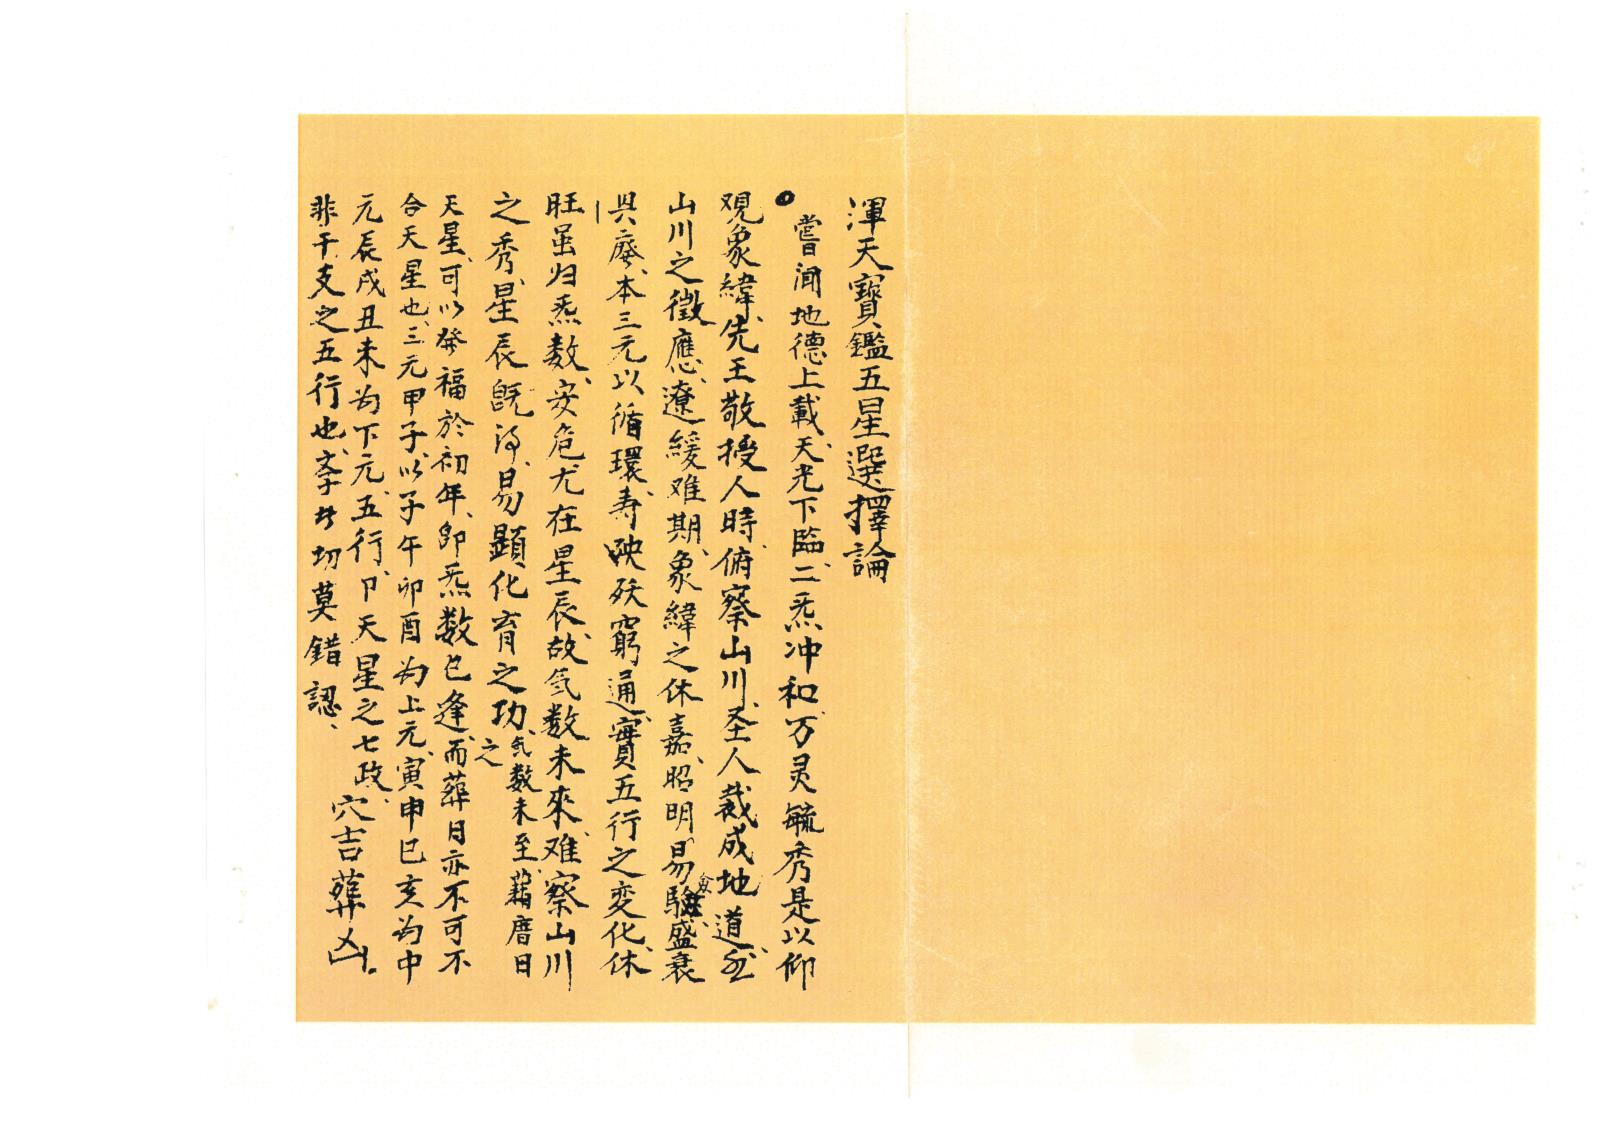 渾天寶鑑五星選擇論
嘗聞地德上載天光下臨二炁冲和万灵毓秀是以仰
观象緯先王敬授人時俯察山川圣人裁成地道然
山川之徵應遼緩难期象緯之休嘉昭明易驗盛衰
具廢本三元以循環寿殀窮通實五行之变化休
旺虽归炁数安危尤在星辰故氣数未來难察山川
之秀星辰既得易顯化育之功氣数未至藉曆日之
天星可以發福於初年即炁数已逢而葬日亦不可不
合天星也三元甲子以子午卯酉为上元寅申巳亥为中
元辰戌丑未为下元五行卩天星之七政
非干支之五行也李廿切莫錯認
穴吉葬凶